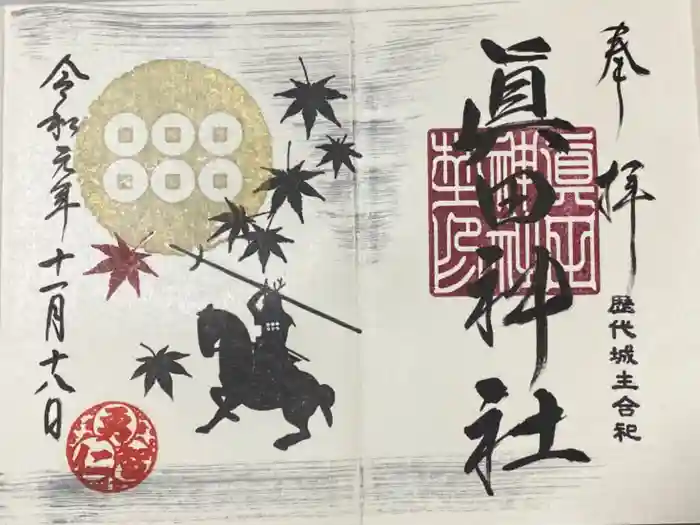 奉拝
歴代城主合祀
眞田神社
眞田神社
令和元年十一月十八日